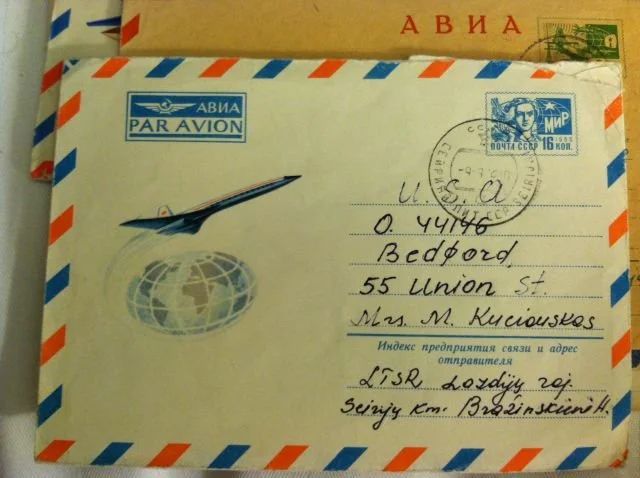 АВИА
АВИА
PAR AVION
МИР
ПОЧТА СССР 16 КОП.
U.S.A
O. 44146
Bedford,
55 Union St.
Mrs. M. Kuciauskas
Индекс предприятия связи и адрес
отправителя
LTSR, Lazdijų raj.
Seirijų km: Bražinskienė H.